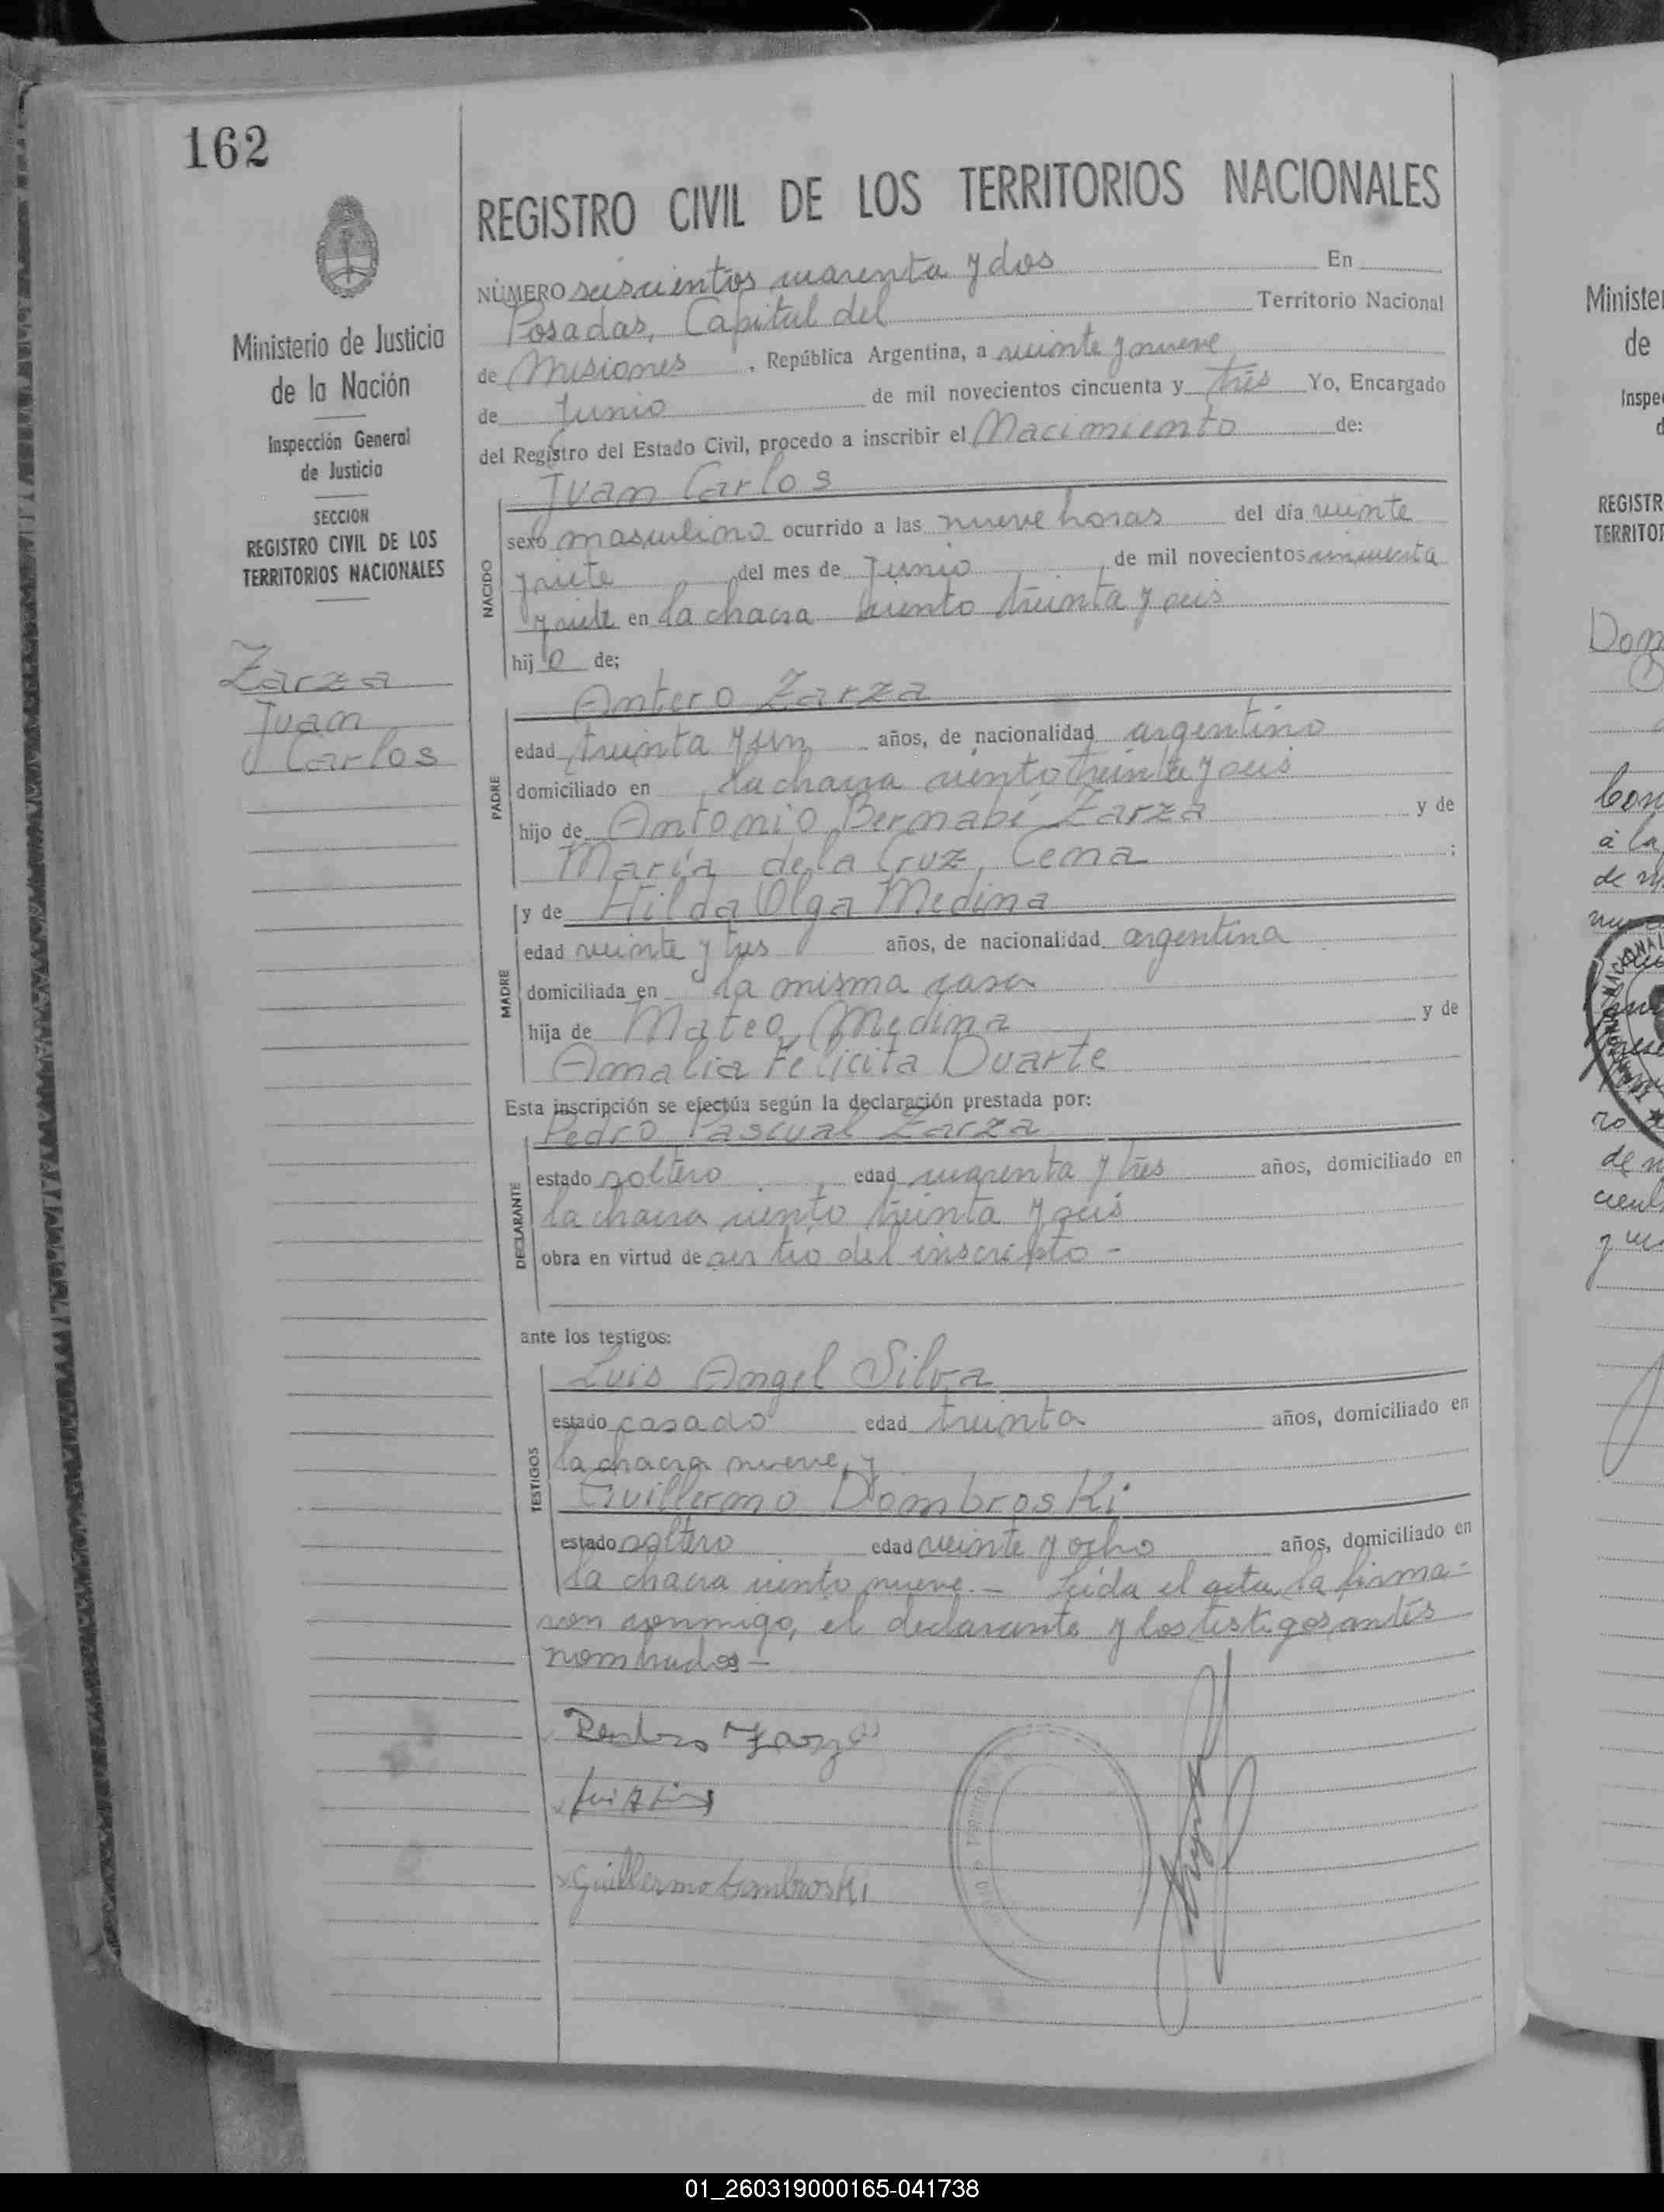 162
Ministerio de Justicia
de la Nación
Inspección General
de Justicia
SECCION
REGISTRO CIVIL DE LOS
TERRITORIOS NACIONALES
Zarza
Juan
Carlos
REGISTRO CIVIL DE LOS TERRITORIOS NACIONALES
NÚMERO seiscientos cuarenta y dos En
Posadas, Capital del Territorio Nacional
de Misiones, República Argentina, a veinte y nueve
de Junio de mil novecientos cincuenta y tres Yo, Encargado
del Registro del Estado Civil, procedo a inscribir el Nacimiento de:
Juan Carlos
NACIDO
sexo masculino ocurrido a las nueve horas del día veinte
y siete del mes de Junio de mil novecientos cincuenta
y siete en la chacra ciento treinta y seis
hijo de;
Antero Zarza
PADRE
edad treinta y un años, de nacionalidad argentino
domiciliado en la chacra ciento treinta y seis
hijo de Antonio Bernabé Zarza y de
María de la Cruz Cena ;
y de Hilda Olga Medina
MADRE
edad veinte y tres años, de nacionalidad argentina
domiciliada en la misma casa
hija de Mateo Medina y de
Amalia Felicita Duarte
Esta inscripción se efectúa según la declaración prestada por:
Pedro Pascual Zarza
DECLARANTE
estado soltero, edad cuarenta y tres años, domiciliado en
la chacra ciento treinta y seis
obra en virtud de ser tio del inscripto -
ante los testigos:
Luis Angel Silva
TESTIGOS
estado casado edad treinta años, domiciliado en
la chacra nueve, y
Guillermo Dombroski
estado soltero edad veinte y ocho años, domiciliado en
la chacra ciento nueve. - Leida el acta, la firma-
ron conmigo, el declarante y los testigos antes
nombrados -
Pedro Zarza
Guillermo Dombroski
Ministe
de
Inspe
d
REGISTR
TERRITOR
01_260319000165-041738